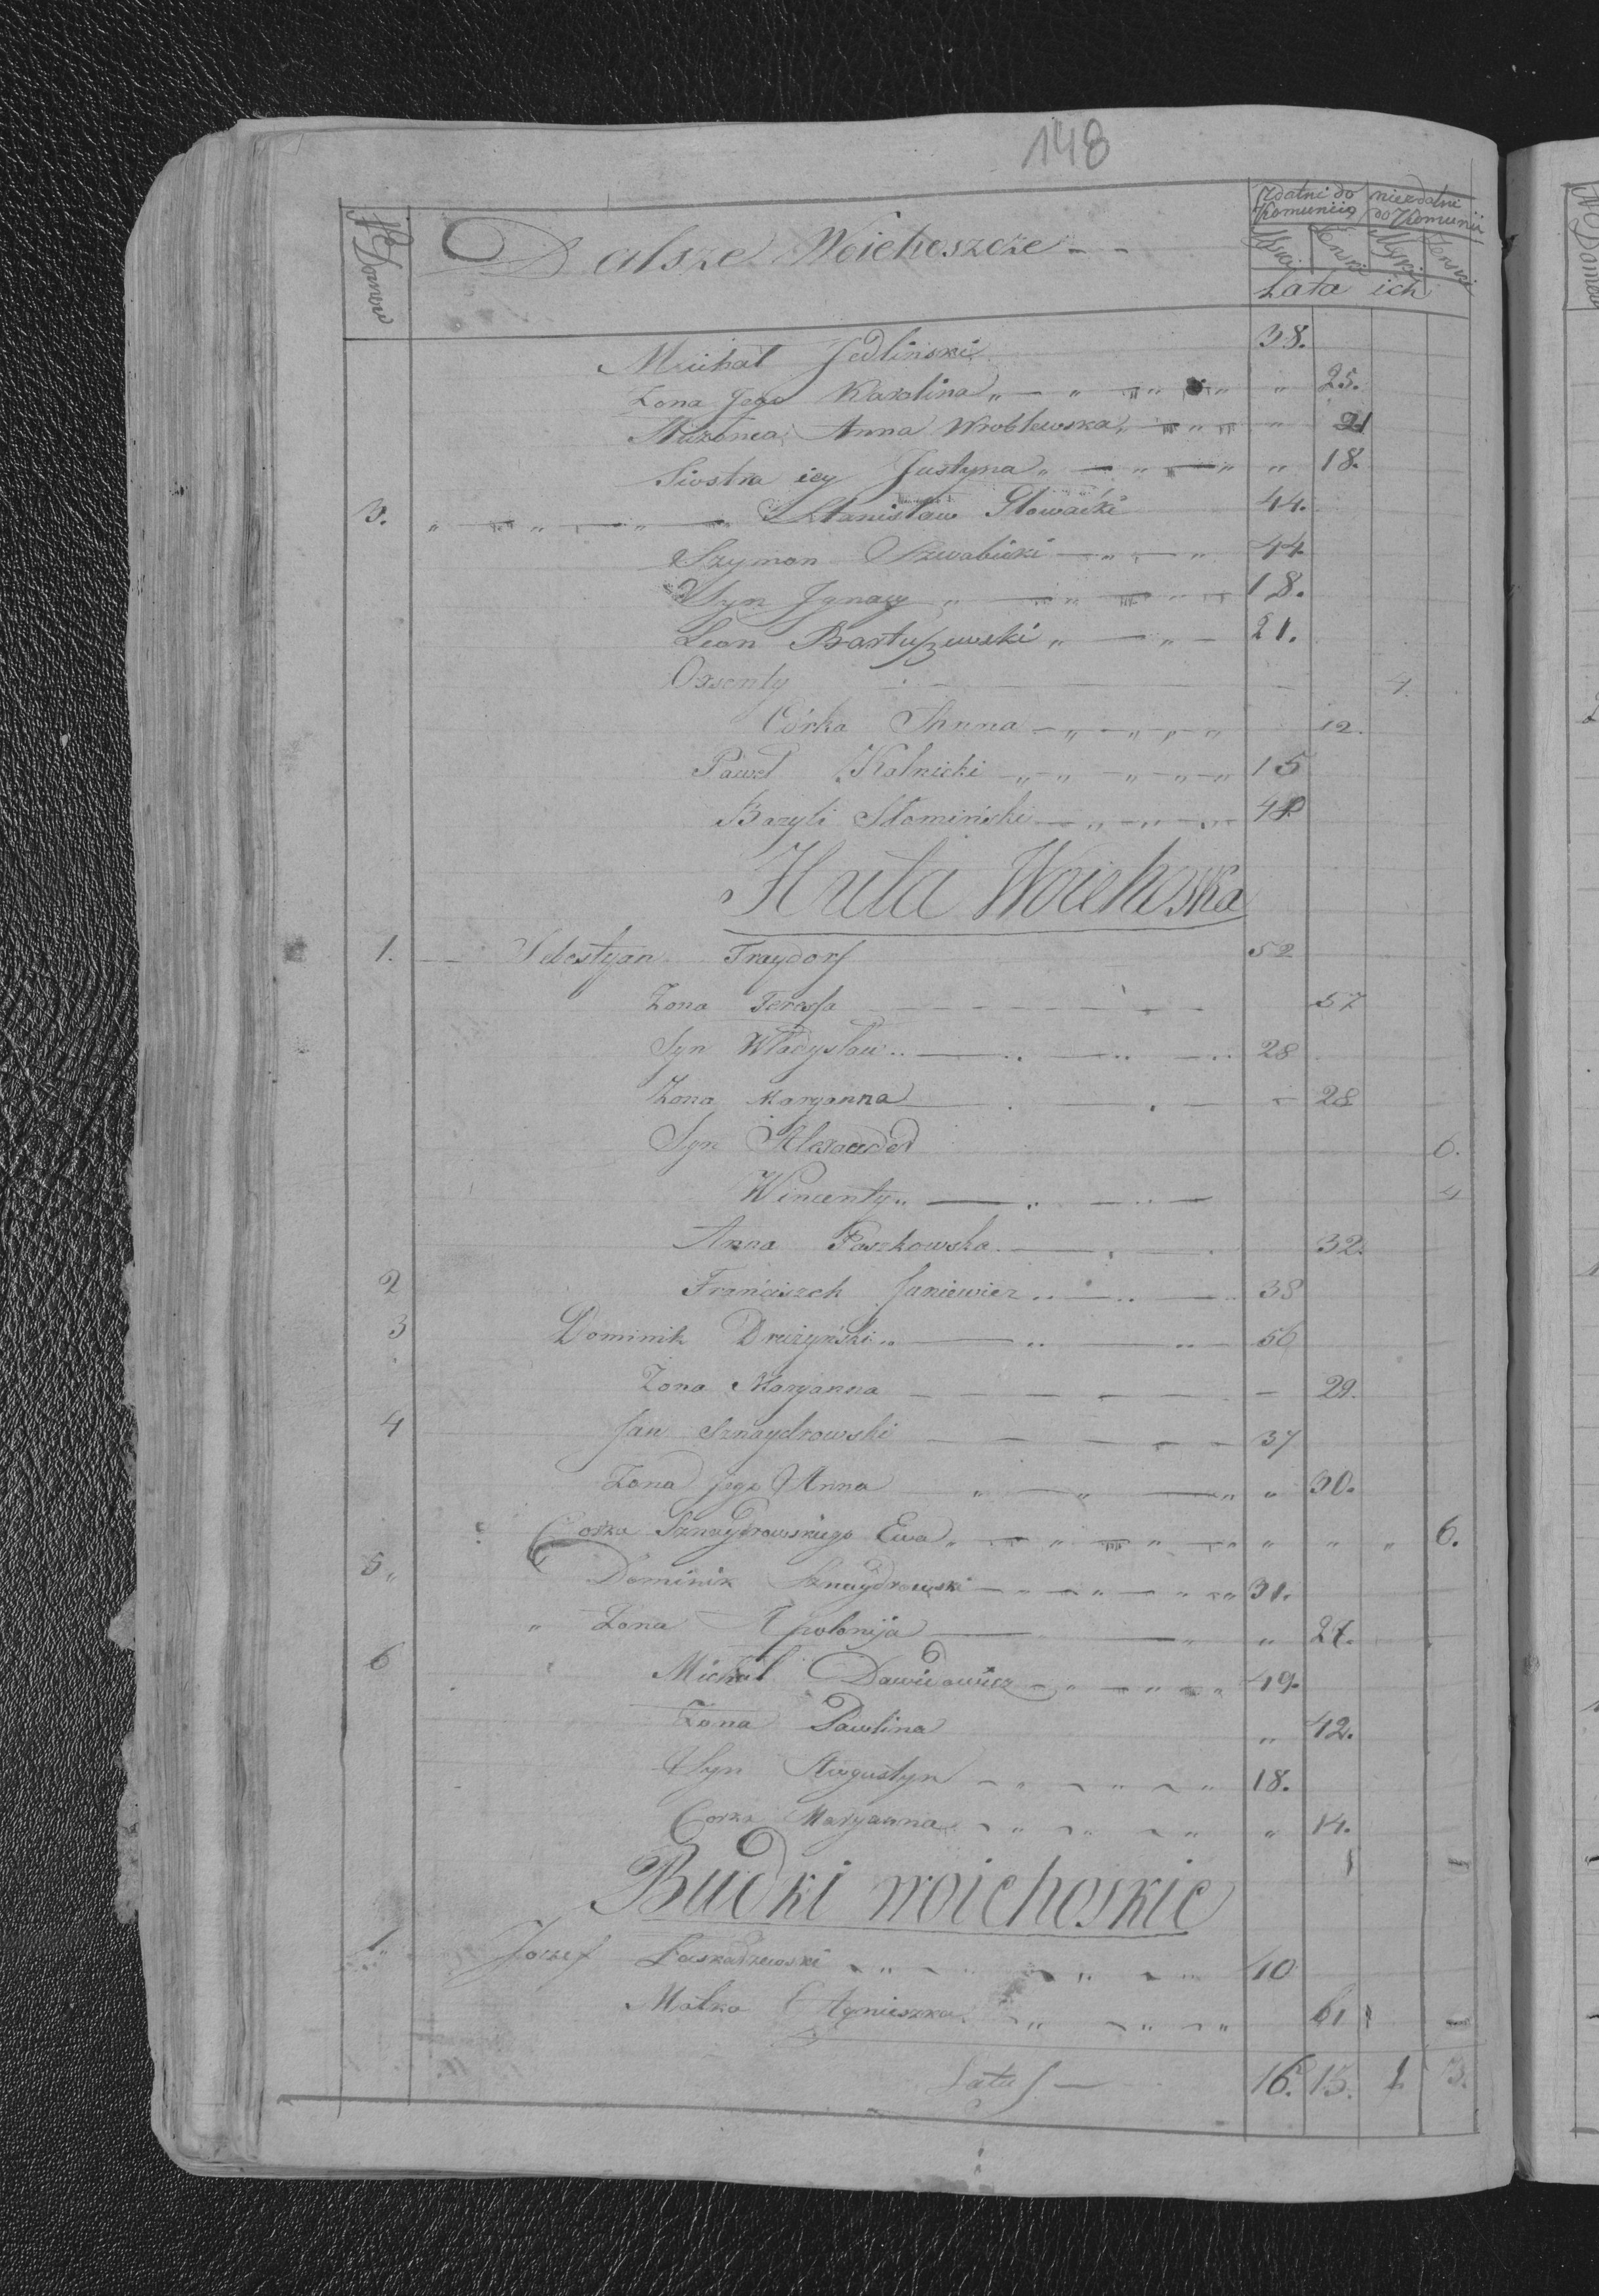 148
N. Domow
Dalsze Woichoszcze
Zdatni do Komunii niezdatni do Komunii
Męski Zenski Męski Zenski
Lata ich
Michał Jedlinski 38.
Zona Jego Karolina " " " " 25.
Anna Wroblewska " " " 21
Siostra iey Justyna " " " " 18.
3. " " " Stanisław Głowacki 44.
Szymon Szwabicki " " 44
Syn Jgnacy " " " 18.
Leon Bartuszewski " " 21.
Oxenty 4.
Córka Anna " " " " 12.
Paweł Kolnicki " " " " " 15
Bazyli Słomiński " " " 48
Huta Woichoska
1. Sebestyan Fraydorf 52
Zona Teressa 57
Syn Władysław 28
Zona Maryanna 28
Syn Alexander 6.
Wincenty 4
Anna Paszkowska 32.
2 Franciszek Janiewicz 38
3 Dominik Drużyński 56
Zona Maryanna 29.
4 Jan Sznaydrowski 37
Zona Jego Anna " " " " 30.
Corka Sznaydrowskiego Ewa " " " " " " " 6.
5 " Dominik Sznaydrowski " " " " 31.
" Zona Apolonija " " 27.
6 Michał Dawidowicz " " " 49.
Zona Pawlina " 42.
Syn Augustyn " " " 18.
Corka Maryanna " " " " 14.
Budki woichoskie
1. Jozef Laskarzewski " " " " 40
Matka Agnieszka " " " 61
Latus 16. 15. 1 3.